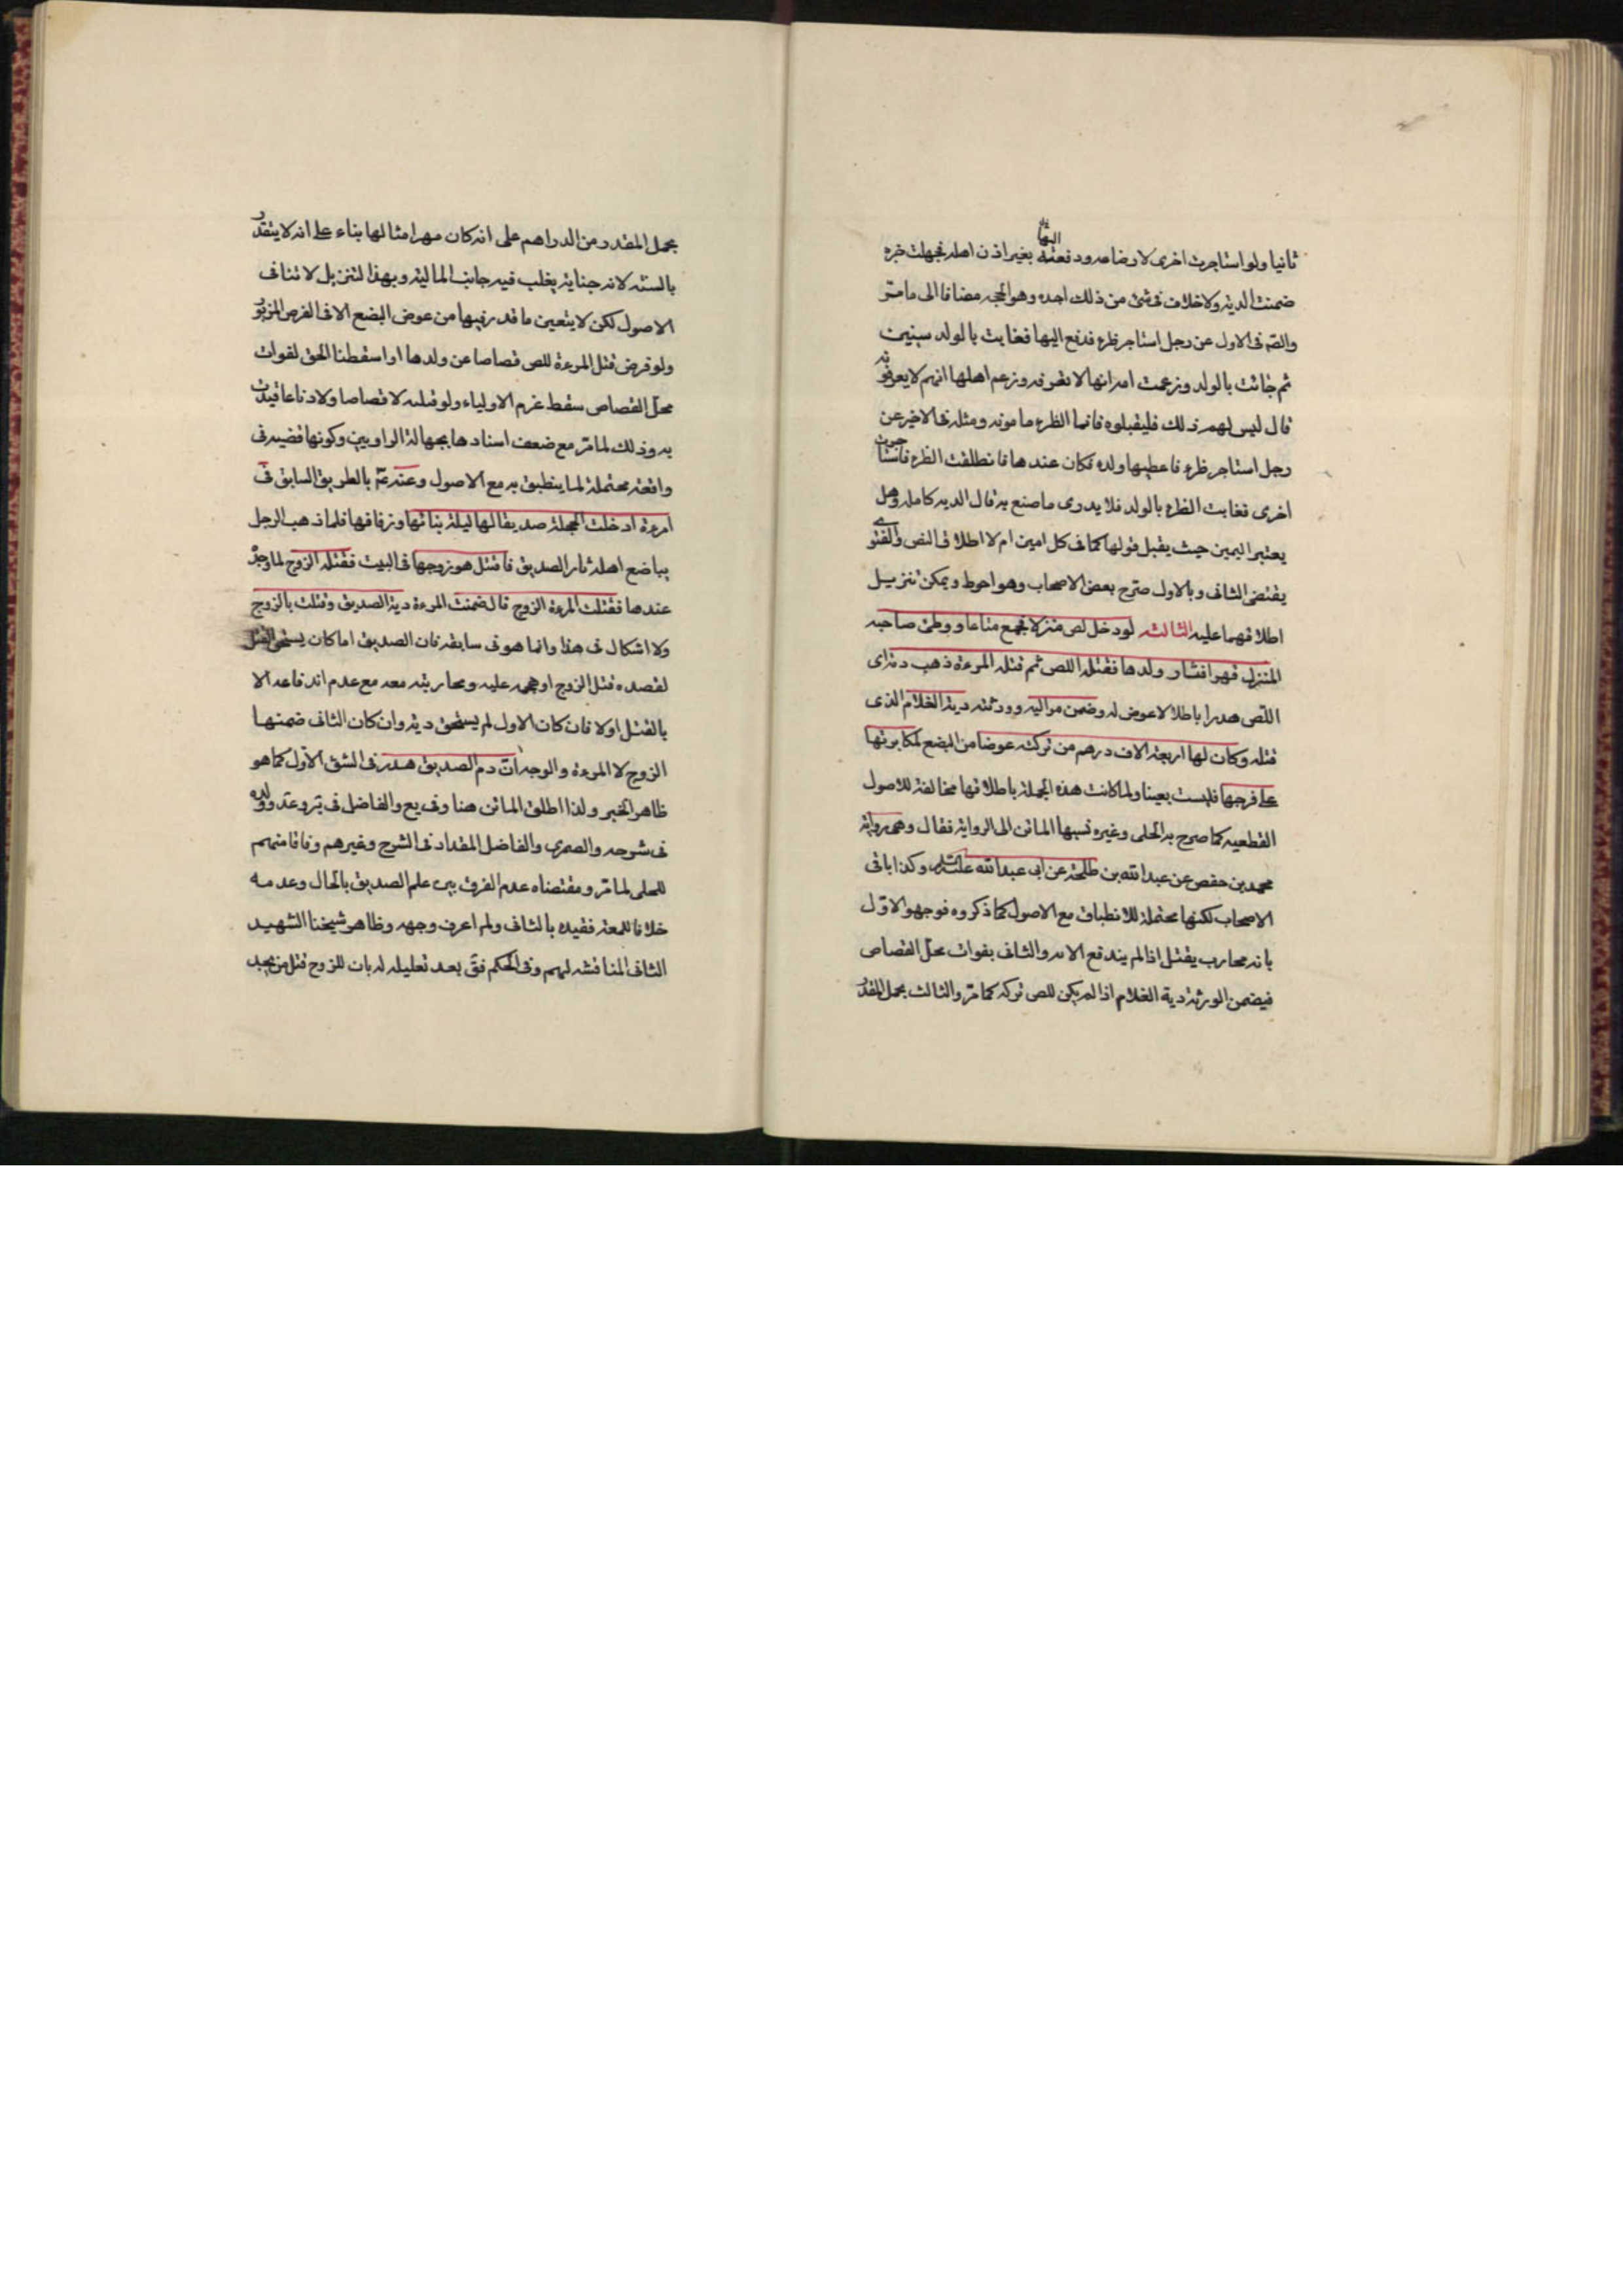 ثانيا ولو استاجرت اخرى لارضاعه ودفعته اليها بغير اذن اهله فجهلت خبره
ضمنت الدية ولا خلاف فى شئ من ذلك اجده وهو الحجه مضافا الى ما مر
والصم فى الاول عن رجل استاجر ظرء فدفع اليها فغابت بالولد سنين
ثم جائت بالولد وزعمت امه انها لا تعرفه وزعم اهلها انهم لا يعرفونه
قال ليس لهم ذلك فليقبلوه فانما الظرء مامونه ومثله فى الاخير عن
رجل استاجر ظرء فاعطيها ولده فكان عندها فانطلقت الظرء فاستاجرت
اخرى فغابت الظرء بالولد فلا يدرى ما صنع به قال الديه كامله وهل
يعتبر اليمين حيث يقبل قولها كما فى كل امين ام لا اطلاق النص والفتوے
يقتضى الثانى وبالاول صرح بعض الاصحاب وهو احوط ويمكن تنزيل
اطلاقهما عليه الثالثه لو دخل لص منزلا فجمع متاعا ووطئ صاحبه
المنزل قهرا فثار ولدها فقتله اللص ثم قتله المرءة ذهب دم اى
اللص هدرا باطلا لا عوض له وضمن مواليه وورثته دية الغلام الذى
قتله وكان لها اربعة الاف درهم من تركته عوضا من البضع لمكابرتها
على فرجها فليست بعينا ولما كانت هذه الجملة باطلاقها مخالفة للاصول
القطعيه كما صرح به الحلى وغيره نسبها الماتن الى الرواية فقال وهى رواية
محمد بن حفص عن عبدالله بن طلحة عن ابى عبدالله عليه السلام وكذا باقى
الاصحاب لكنها محتملة للانطباق مع الاصول كما ذكروه فوجهوا الاول
بانه محارب يقتل اذا لم يندفع الا به والثانى بفوات محل القصاص
فيضمن الورثة دية الغلام اذا لم يكن للص تركه كما مر والثالث بحمل المقدر
بحمل المقدر من الدراهم على انه كان مهر امثالها بناء على انه لا يتقدر
بالسنه لانه جناية يغلب فيه جانب المالية وبهذا لتنزيل لا تنافى
الاصول لكن لا يتعين ما قدر فيها من عوض البضع الا فى الفرض المزبور
ولو فرض قتل المرءة للص قصاصا عن ولدها او اسقطنا الحق لفوات
محل القصاص سقط غرم الاولياء ولو قتلته لا قصاصا ولا دفاعا قيدت
به وذلك لما مر مع ضعف اسنادها بجهالة الراويين وكونها قضيه فى
واقعة محتملة لما ينطبق به مع الاصول وعنه عم بالطريق السابق فى
امرءة ادخلت الحجلة صديقا لها ليلة بنائها وزفافها فلما ذهب الرجل
يباضع اهله ثار الصديق فاقتتل هو زوجها فى البيت فقتله الزوج لما وجده
عندها فقتلت المرءة الزوج قال ضمنت المرءة دية الصديق وقتلت بالزوج
ولا اشكال فى هذا وانما هو فى سابقه فان الصديق اما كان يستحق القتل
لقصده قتل الزوج او هجمه عليه ومحاربته معه مع عدم اندفاعه الا
بالقتل اولا فان كان الاول لم يستحق دية وان كان الثانى ضمنها
الزوج لا المرءة والوجه ان دم الصديق هدر فى الشق الاول كما هو
ظاهر الخبر ولذا اطلق الماتن هنا وفى يع والفاضل فى ير وعد وولده
فى شرحه والصمرى والفاضل المقداد فى الشرح وغيرهم وفاقا منهم
للحلى لما مر ومقتضاه عدم الفرق بين علم الصديق بالحال وعدمه
خلافا للمعه فقيده بالثانى ولم اعرف وجهه وظاهر شيخنا الشهيد
الثانى المناقشه لهم وفى الحكم فق بعد تعليله له بان للزوج قتل من يجد